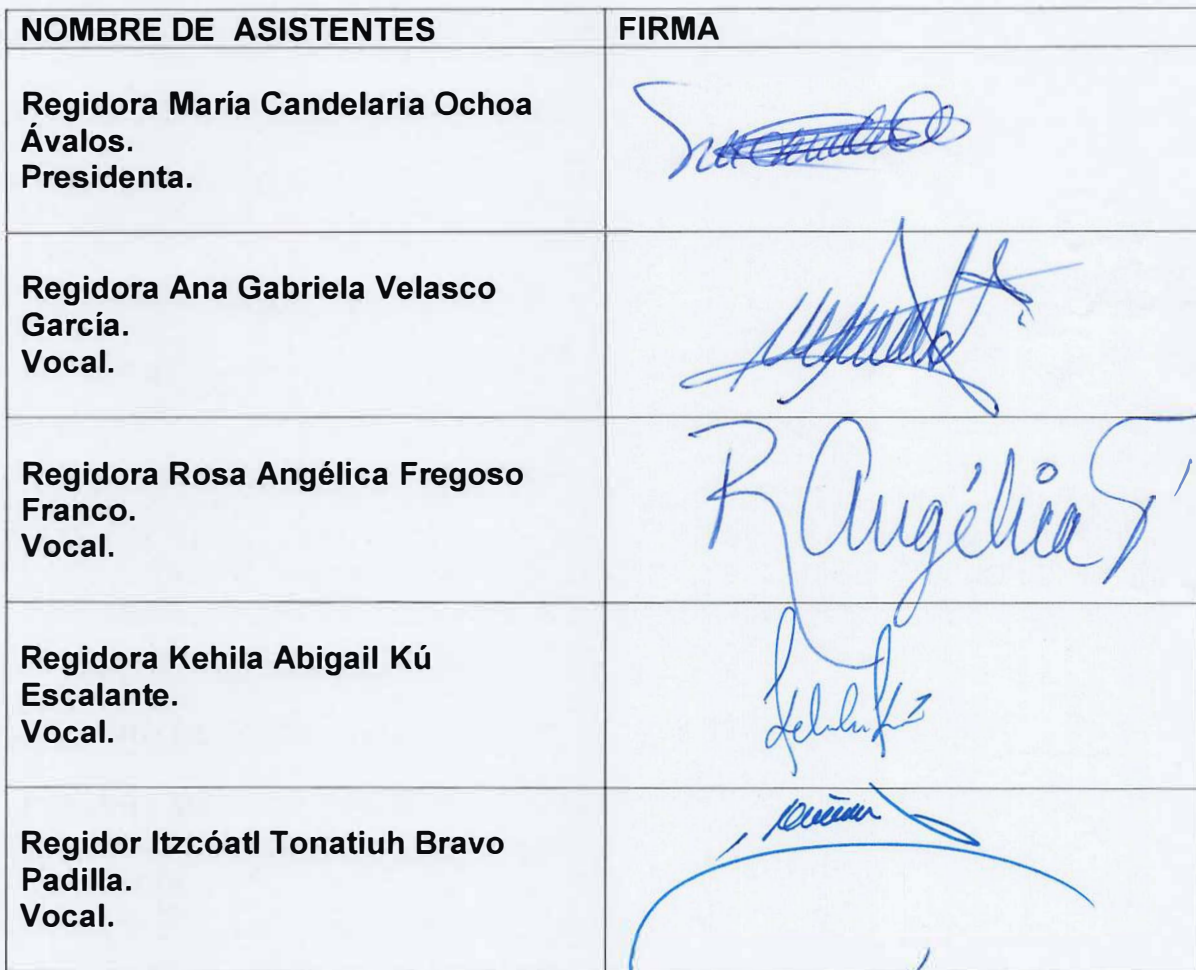 NOMBRE DE ASISTENTES
FIRMA
Regidora María Candelaria Ochoa
Ávalos.
Presidenta.
Regidora Ana Gabriela Velasco
García.
Vocal.
Regidora Rosa Angélica Fregoso
Franco.
Vocal.
R Angélica F
Regidora Kehila Abigail Kú
Escalante.
Vocal.
Kehila Kú
Regidor Itzcóatl Tonatiuh Bravo
Padilla.
Vocal.